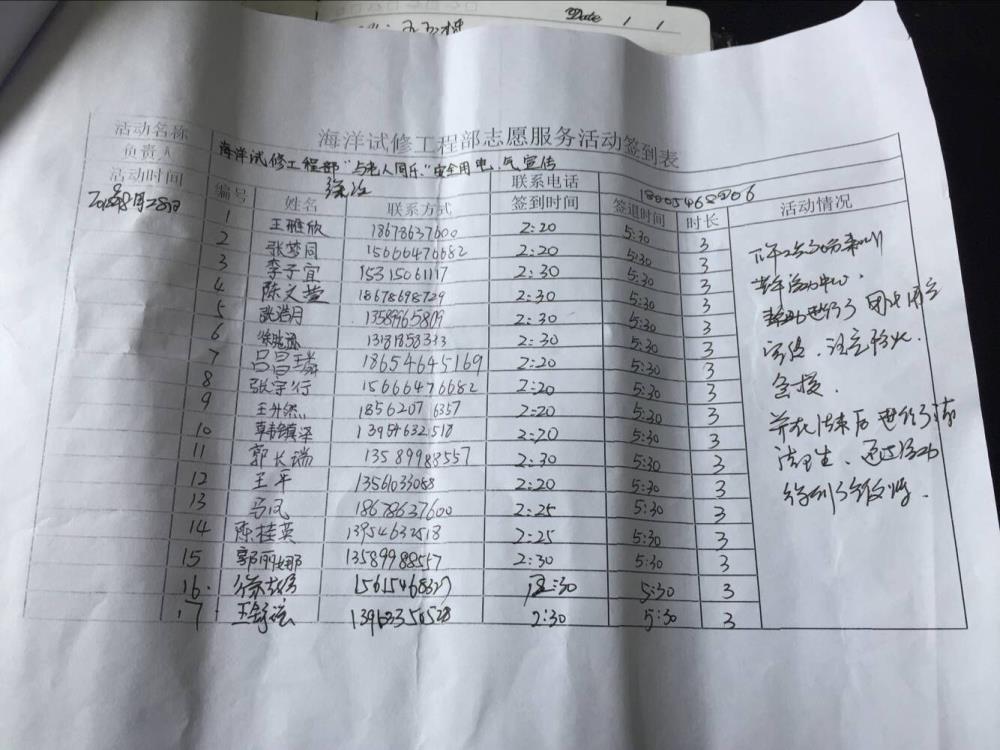 Date / /
海洋试修工程部志愿服务活动签到表
活动名称 海洋试修工程部"与老人同乐"安全用电、气宣传
负责人 联系电话 18005468206
活动时间 编号 姓名 联系方式 签到时间 签退时间 时长 活动情况
2018年8月28日
1 王雅欣 18678637600 2:20 5:30 3
2 张梦同 15666476682 2:20 5:30 3
3 李子宜 15315061117 2:30 5:30 3
4 陈义萱 18678698729 2:30 5:30 3
5 张浩月 13589965809 2:30 5:30 3
6 13181858333 2:30 5:30 3
7 吕昌璘 18654645169 2:20 5:30 3
8 张宇行 15666476682 2:20 5:30 3
9 1856207 6357 2:20 5:30 3
10 韩镇泽 13954632518 2:20 5:30 3
11 郭长瑞 13589988557 2:30 5:30 3
12 王平 13561033058 2:20 5:30 3
13 马凤 18678637600 2:25 5:30 3
14 陈桂英 13954632518 2:25 5:30 3
15 郭丽娜 13589988557 2:30 5:30 3
16 15615468327 2:30 5:30 3
17 2:30 5:30 3
下午2点30分来到
老年活动中心,
进行了用电用气
宣传、注意防火、
急援。
并在结束后进行了清
洁卫生、通过活动